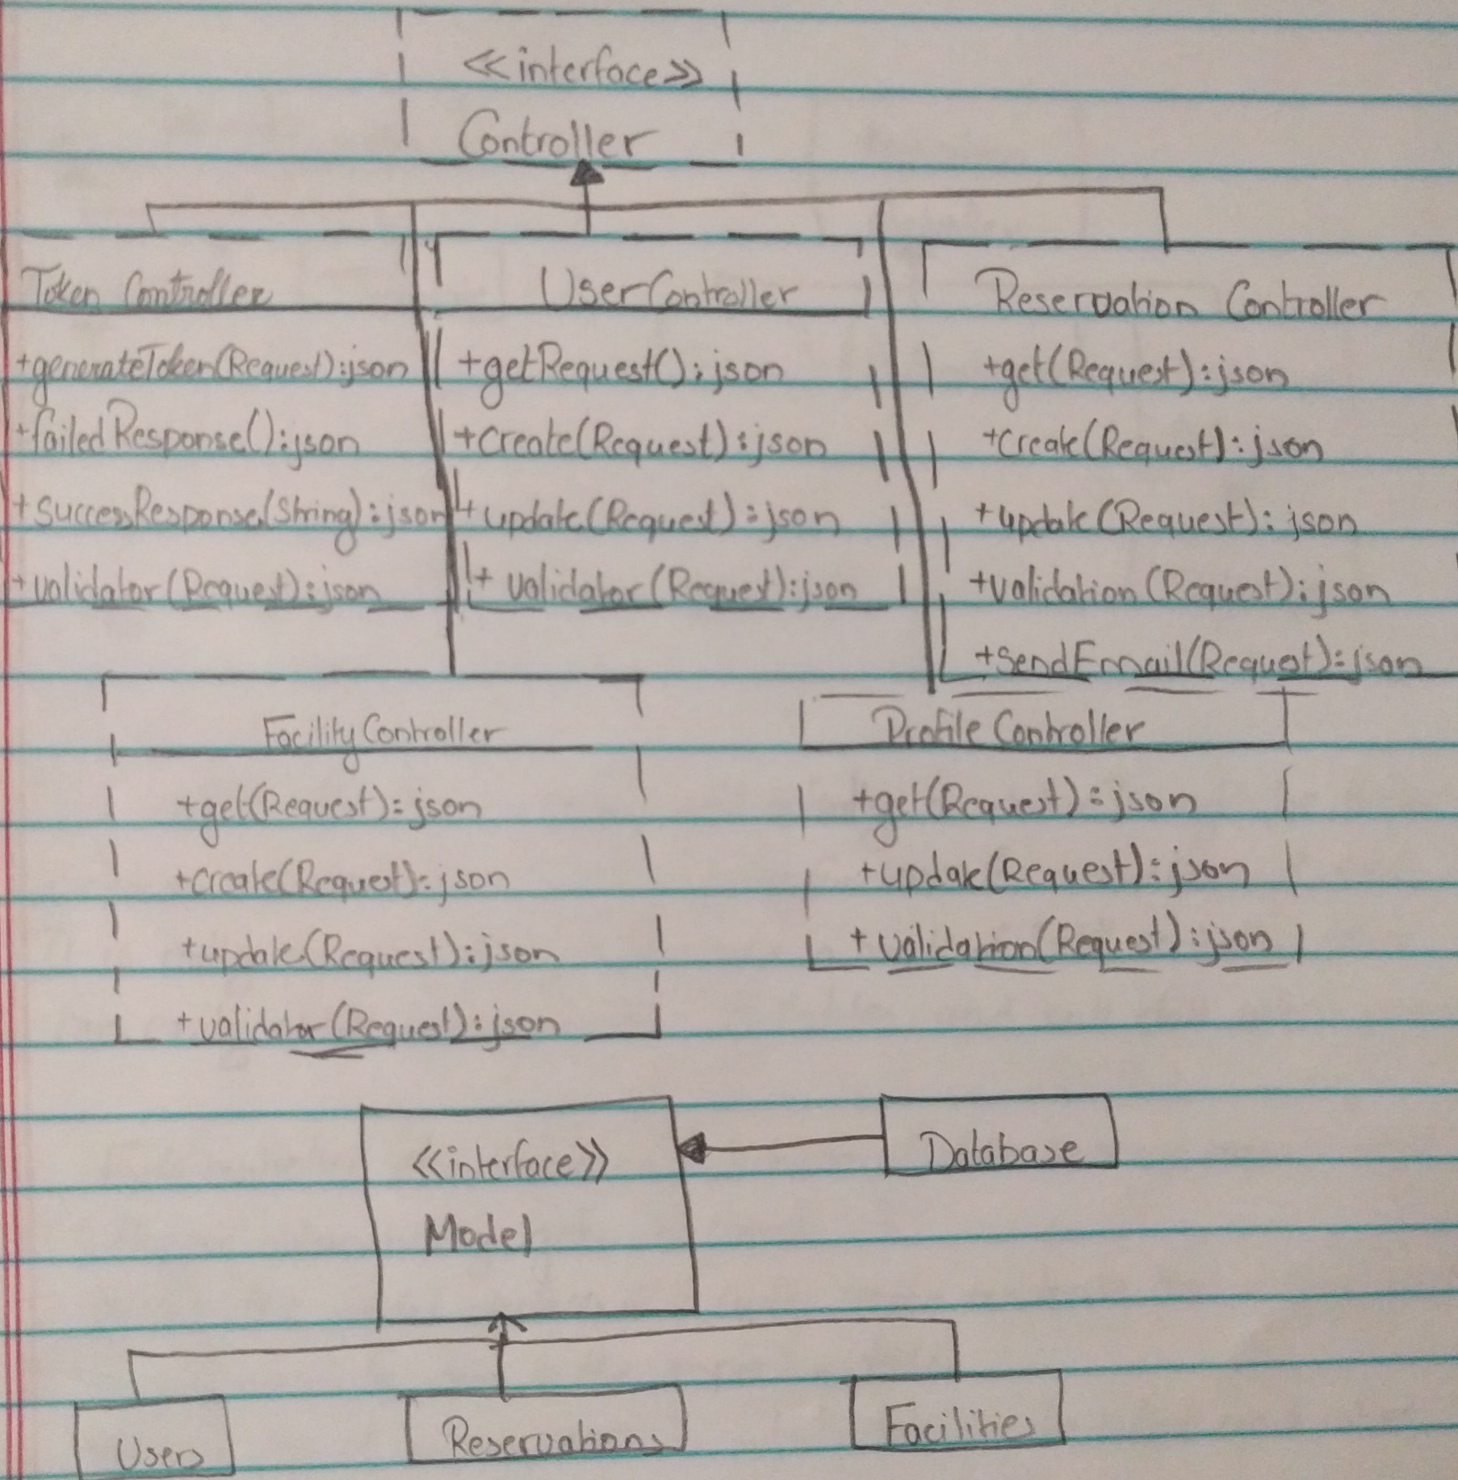 <<interface>>
Controller
Token Controller
+generateToken(Request):json
+failedResponse():json
+successResponse(String):json
+validator(Request):json
UserController
+getRequest():json
+create(Request):json
+update(Request):json
+validator(Request):json
Reservation Controller
+get(Request):json
+create(Request):json
+update(Request):json
+validation(Request):json
+sendEmail(Request):json
FacilityController
+get(Request):json
+create(Request):json
+update(Request):json
+validator(Request):json
Profile Controller
+get(Request):json
+update(Request):json
+validation(Request):json
<<interface>>
Model
Database
Users
Reservations
Facilities